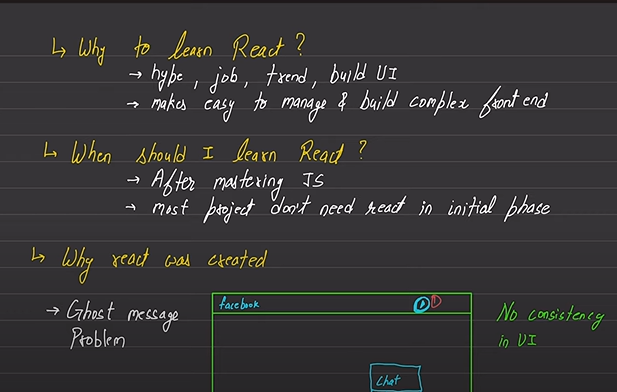 ↳ Why to learn React ?
→ hype, job, trend, build UI
→ makes easy to manage & build complex front end
↳ When should I learn React ?
→ After mastering JS
→ most project don't need react in initial phase
↳ Why react was created
→ Ghost message
Problem
facebook
No consistency
in UI
Chat